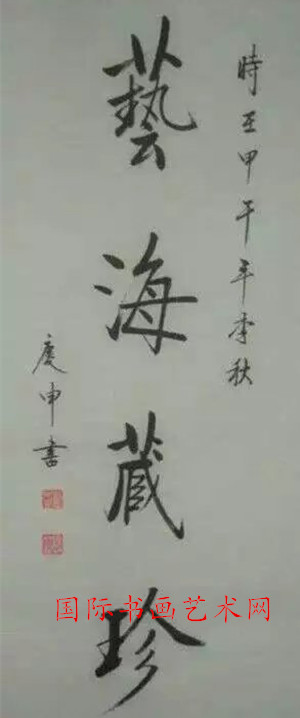 時至甲午年季秋
藝海藏珍
慶申書
国际书画艺术网